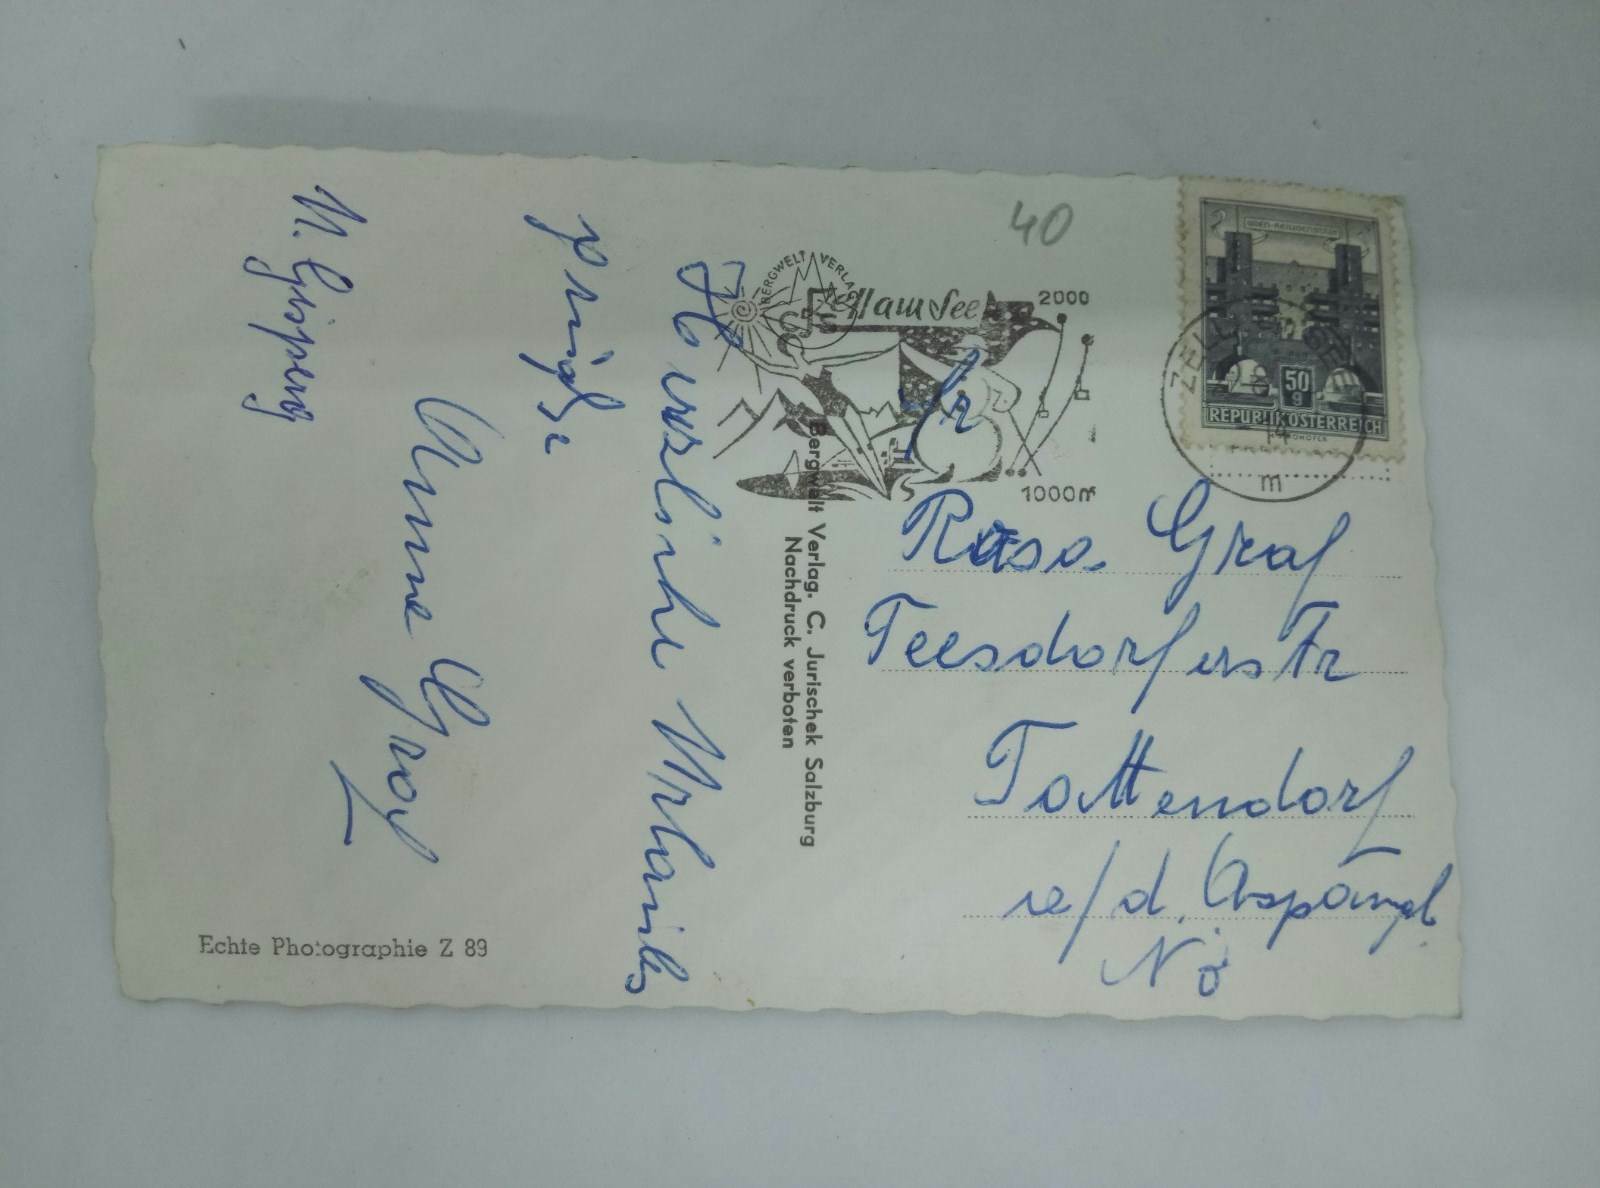 Herzliche Urlaubs
grüße
Anna Graf
M.
Echte Photographie Z 89
Bergwelt Verlag. C. Jurischek Salzburg
Nachdruck verboten
BERGWELT VERLAG
Zell am See
2000
1000m
40
50
g
REPUBLIK ÖSTERREICH
ZELL AM SEE
m
Fr
Rosa Graf
Teesdorferstr
Tattendorf
a/d. Aspangb.
NÖ